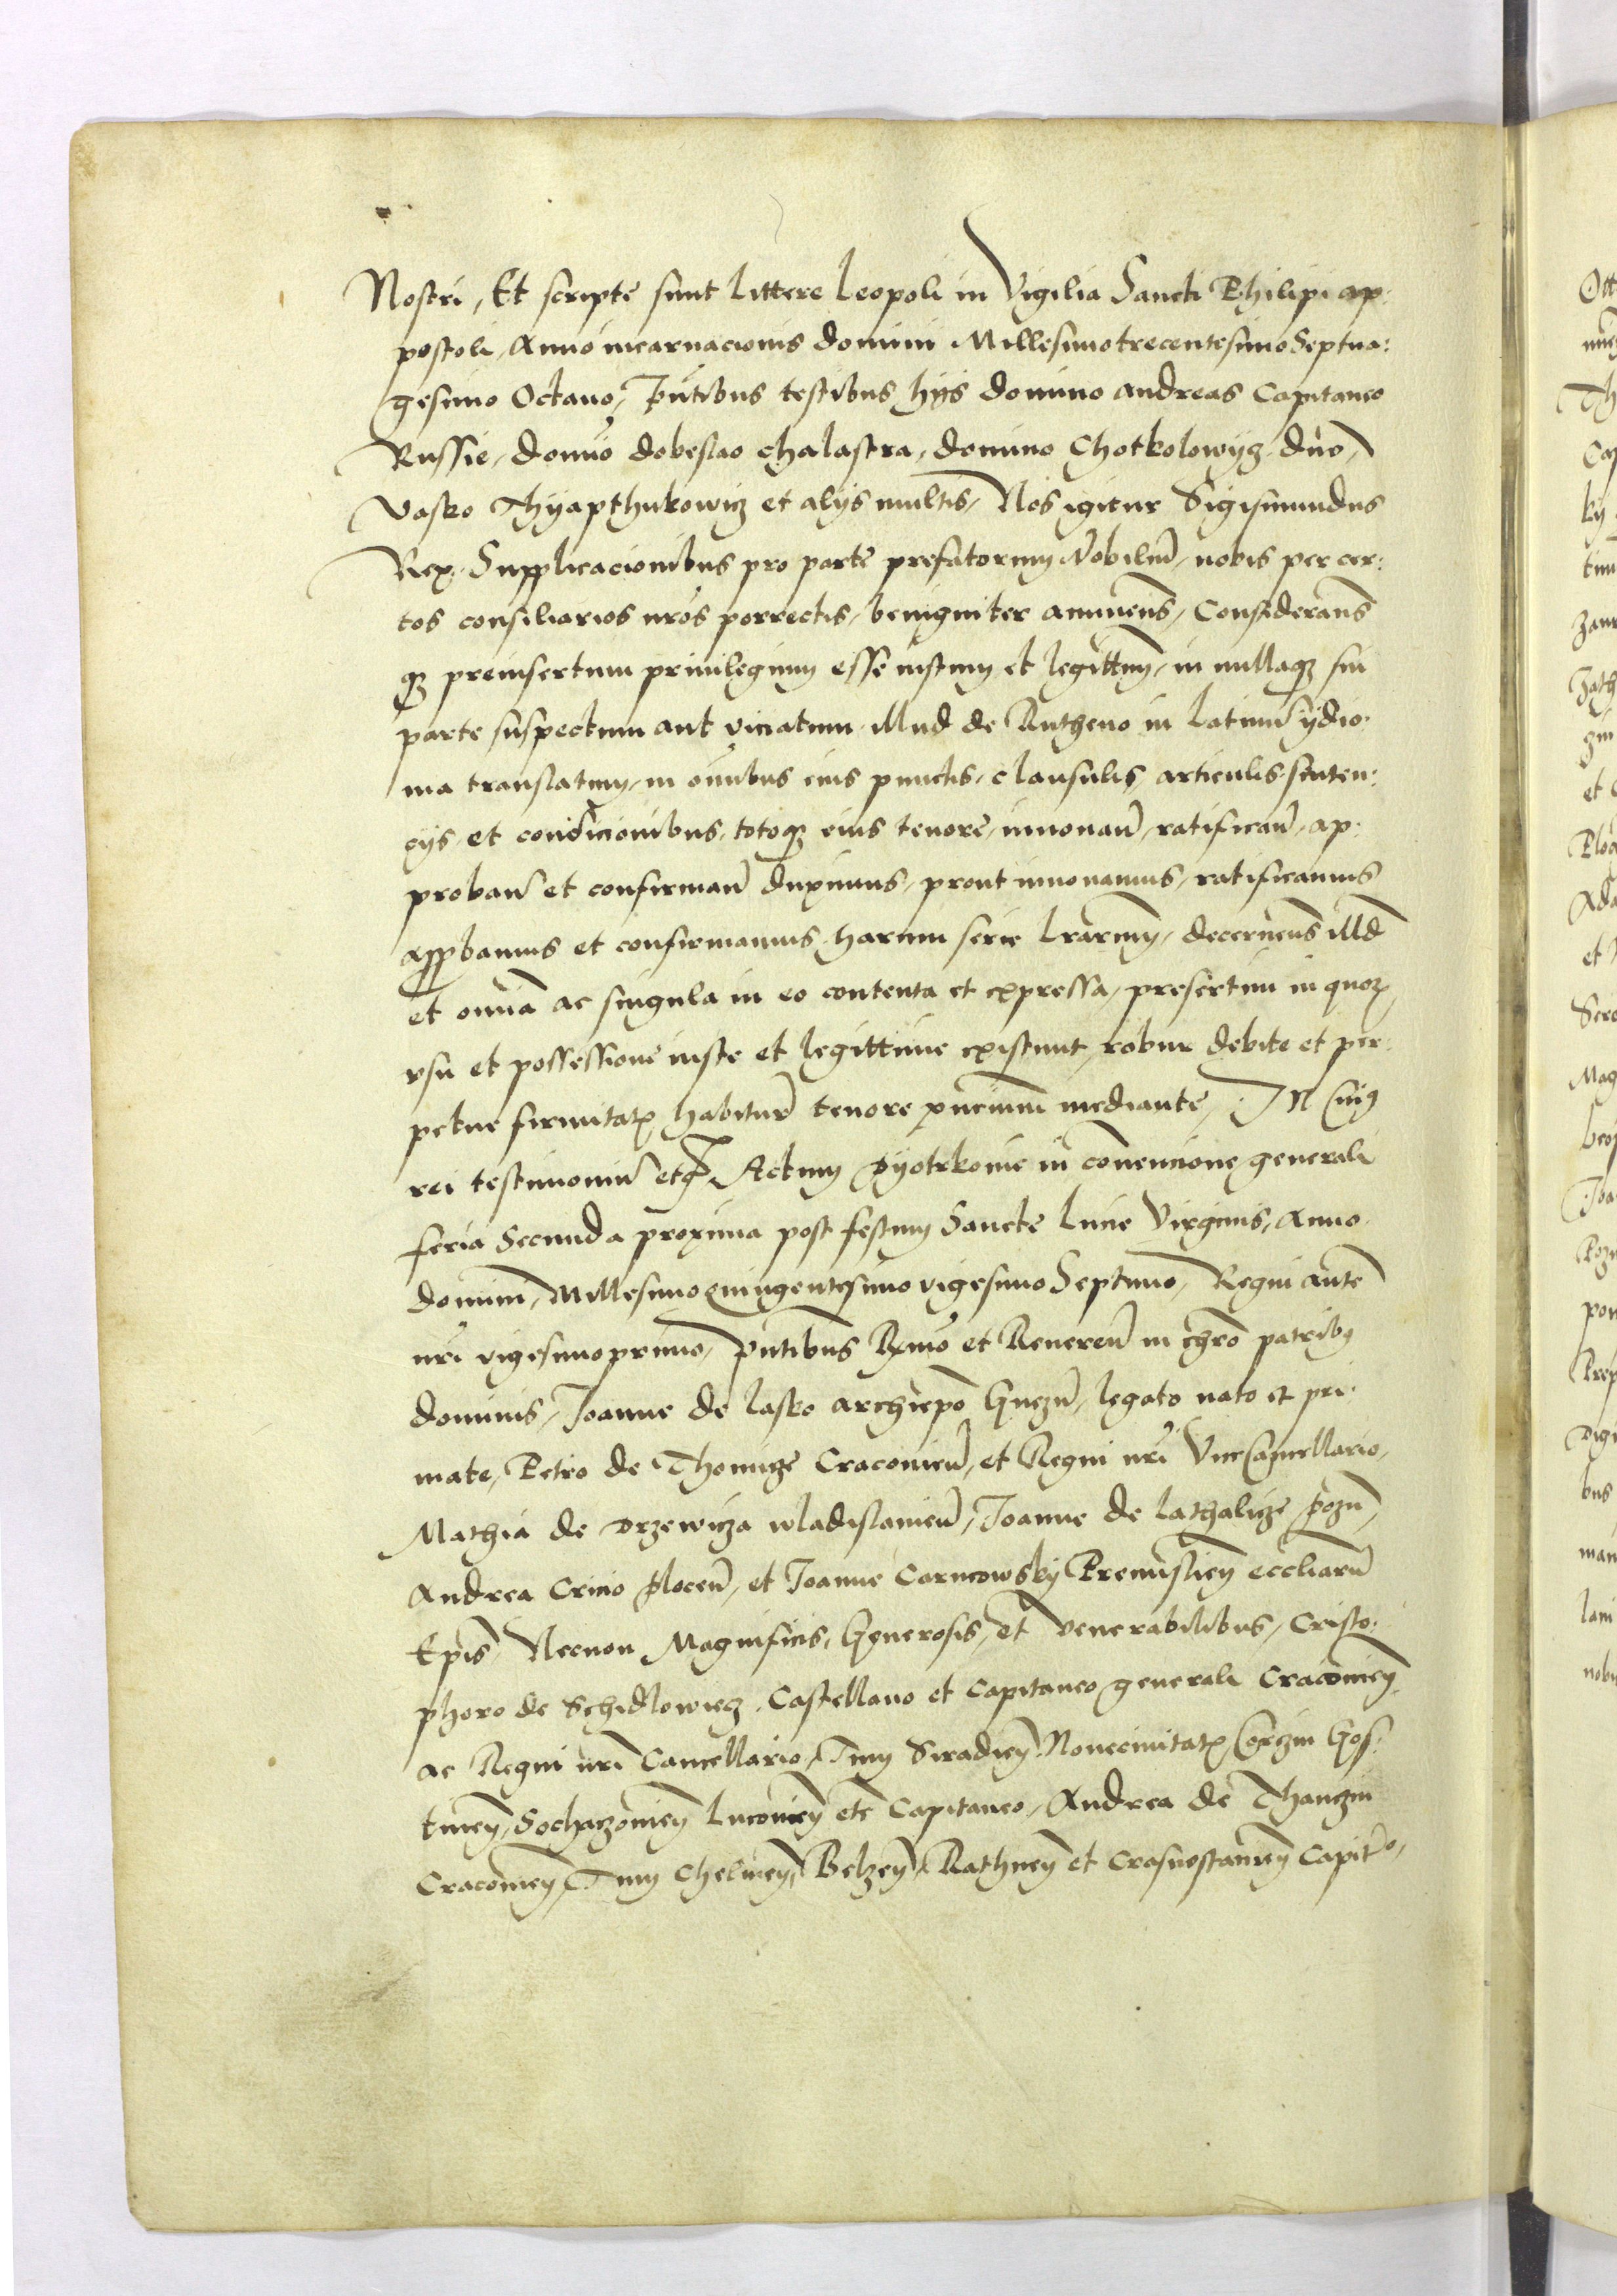 Nostri, Et scripte sunt littere Leopoli in Vigilia Sancti Philipi ap:
postoli, Anno incarnacionis domini Millesimotrecentesimo Septua:
gesimo Octauo, Pntibus testibus hÿs domino andreas Capitaneo
Russie, domĩo dobeslao chalastra, domino Chotkolowÿcz, dno,
Vasko Thÿapthukowicz et alÿs multis, Nos igitur Sigismundus
Rex, Supplicacionibus pro parte prefatorum Nobiliũ, nobis per cer:
tos consiliarios nr̃os porrectis, benigniter annuens, Considerans
qz preinsertum priuilegium esse iustum et legittm, in nullaqz sui
parte suspectum aut viciatum, illud de Rutheno in latinũ ydio:
ma translatum, in om̃ibus eius punctis, clausulis, articulis, senten:
cÿs, et condicionibus, totoqz eius tenore, innouan̄, ratifican̄, ap:
proban̄ et confirman̄ duximus, prout innouamus, ratificamus
appbamus et confirmamus harum serie lrarum, decernens illd
et omnia ac singula in eo contenta et expressa, presertim in quoꝝ
vsu et possessione iuste et legittime existunt, robur debite et per:
petue firmitatꝭ habitur̄ tenore pn̄cium mediante, IN cuiꝯ
rei testimoniũ etꝭ. Actum Pÿotrkouie in conuencione generali
feria Secunda proxima post festum Sancte Lucie Virginis, Anno
domini, Millesimoquingentesimo vigesimo Septimo, Regni aute
nr̃i vigesimoprimo, Pn̄tibus Rxmo et Reueren̄ in chr̃o patribꝯ
dominis, Joanne de lasko archiepo Gnezn̄, legato nato et pri:
mate, Petro de Thomicze Cracouien̄, et Regni nr̃i Vicecancellario,
Mathia de Drzewicza wladislauien̄, Joanne de lathalicze pozn̄,
Andrea Cricio plocen̄, et Joanne Carncowskÿ Premislien̄ eccliarũ
Epis, Necnon Magnificis, Generosis, et Venerabilibus, Cristo:
phoro de Schidlowiecz, Castellano et Capitaneo generali Cracouien̄,
ac Regni nr̃i Cancellario, Tum Siradien̄ Nouecivitatꝭ Corczin Gos:
tinen̄, Sochaczouien̄ Lucouien̄ etc Capitaneo, Andrea de Thanczin
Cracouien̄, Tum Chelmen̄, Belzen̄, Rathnen̄ et Crasnostauien̄ Capitno,